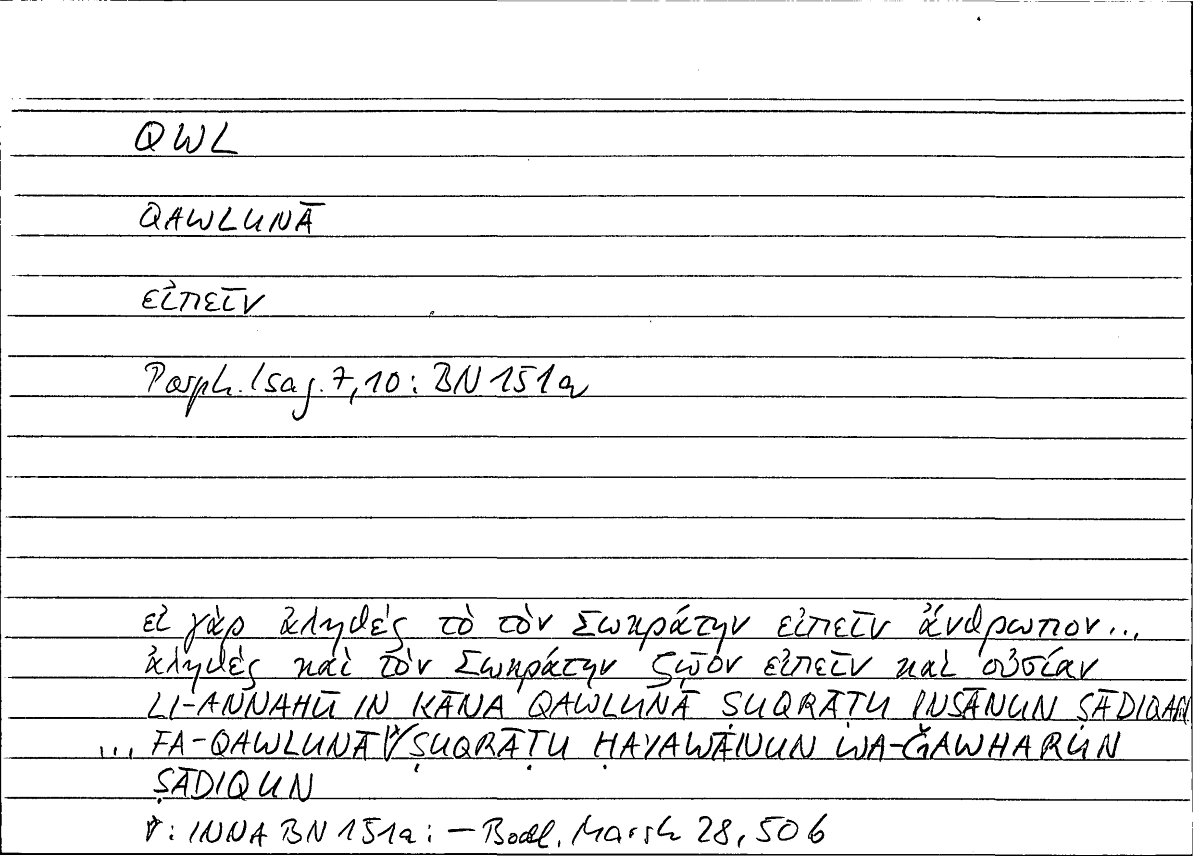 QWL
QAWLUNĀ
εἰπεῖν
Porph. Isag. 7,10: BN 151a
εἰ γὰρ ἀληθές τὸ τὸν Σωκράτην εἰπεῖν ἄνθρωπον...
ἀληθές καὶ τὸν Σωκράτην ζῷον εἰπεῖν καὶ οὐσίαν
LI-ANNAHŪ IN KĀNA QAWLUNĀ SUQRĀṬU INSĀNUN ṢĀDIQAN
... FA-QAWLUNĀ ṢUQRĀṬU ḤAYAWĀNUN WA-ǦAWHARUN
ṢĀDIQUN
: INNA BN 151a: — Bodl. Marsh 28, 50b